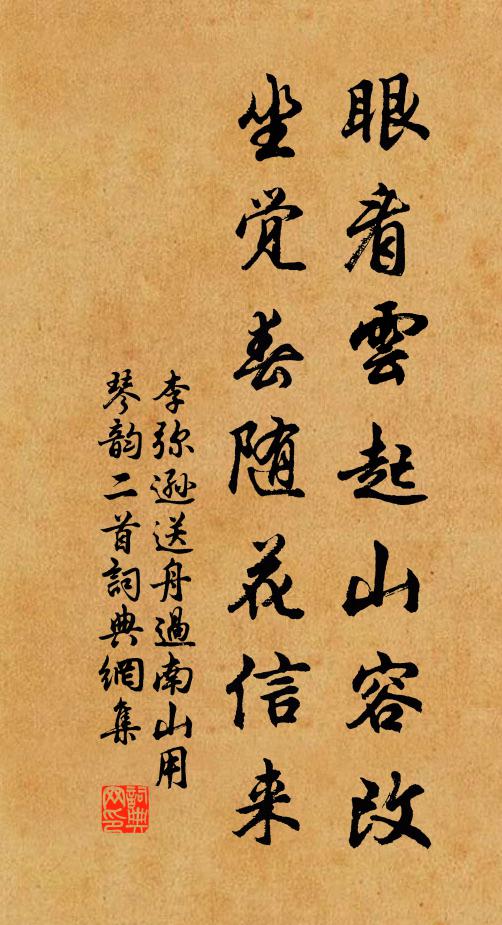 眼看雲起山容改
坐觉春随花信来
李弥遜送舟過南山用
琴韵二首詞典網集
詞典网印